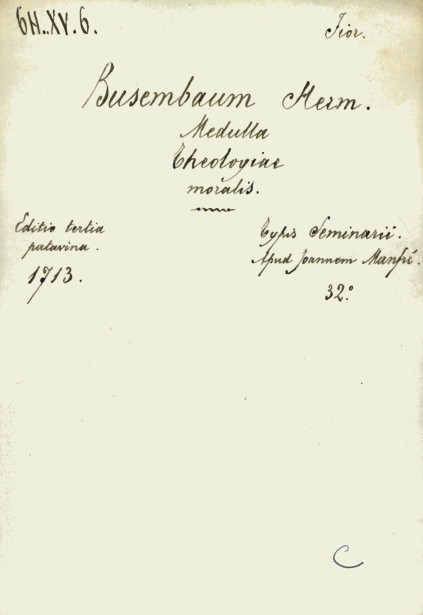 6H.XV.6.
Fior.
Busembaum Herm.
Medulla
Theologiae
moralis.
Editio tertia
patavina.
1713.
Typis Seminarii.
Apud Joannem Manfrè.
32°
C